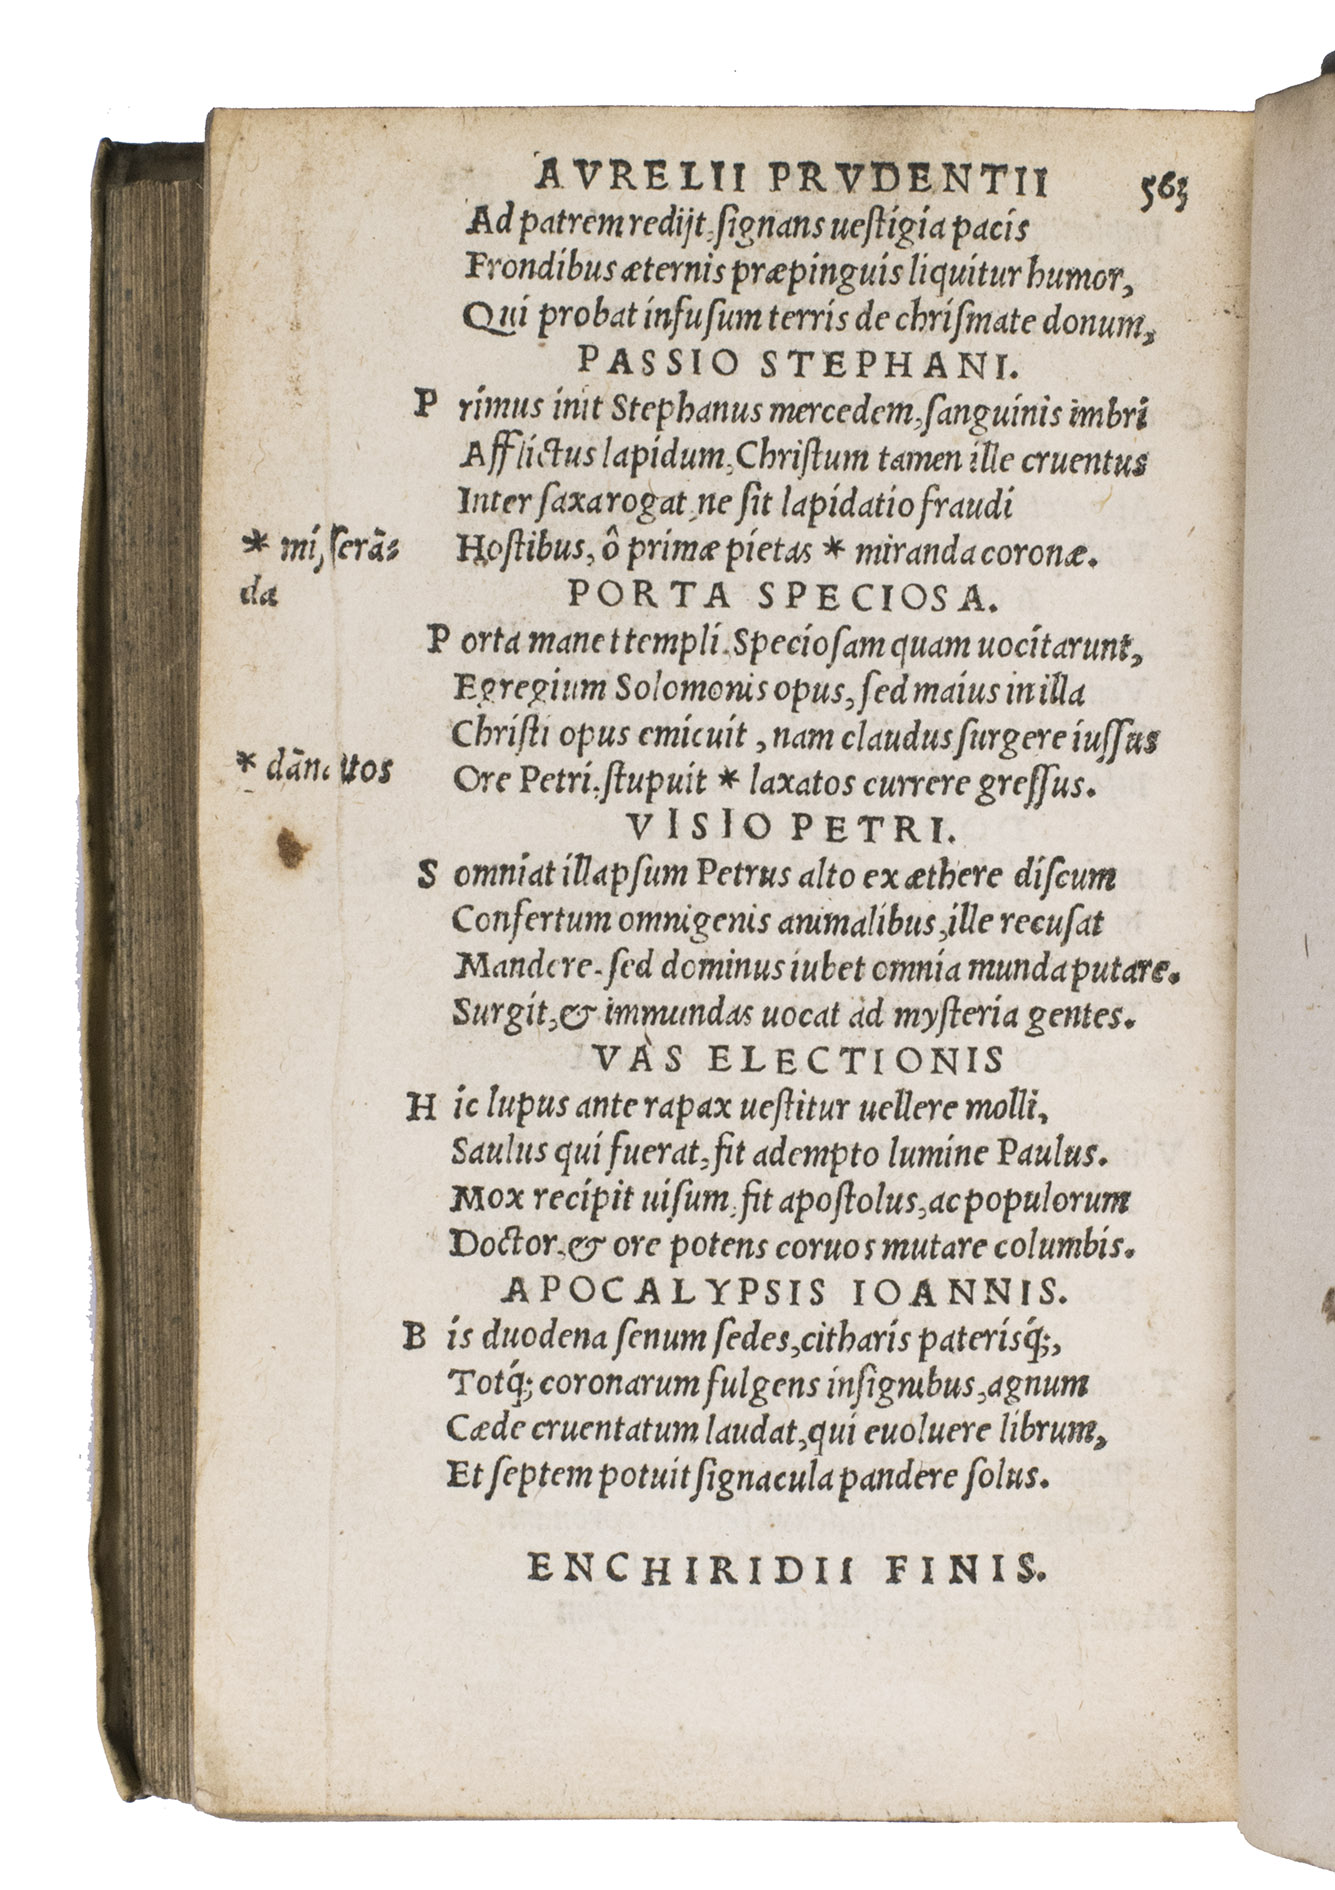 AVRELII PRVDENTII 563
Ad patrem redijt, ſignans ueſtigia pacis
Frondibus æternis præpinguis liquitur humor,
Qui probat infuſum terris de chriſmate donum,
PASSIO STEPHANI.
P rimus init Stephanus mercedem, ſanguinis imbri
Afflictus lapidum, Chriſtum tamen ille cruentus
Inter ſaxa rogat, ne ſit lapidatio fraudi
* miſerā= Hoſtibus, ô primæ pietas * miranda coronæ.
da
PORTA SPECIOSA.
P orta manet templi, Specioſam quam uocitarunt,
Egregium Solomonis opus, ſed maius in illa
Chriſti opus emicuit, nam claudus ſurgere iuſſus
* dānatos Ore Petri, ſtupuit * laxatos currere greſſus.
VISIO PETRI.
S omniat illapſum Petrus alto ex æthere diſcum
Confertum omnigenis animalibus, ille recuſat
Mandere. ſed dominus iubet omnia munda putare.
Surgit, & immundas uocat ad myſteria gentes.
VAS ELECTIONIS
H ic lupus ante rapax ueſtitur uellere molli,
Saulus qui fuerat, fit adempto lumine Paulus.
Mox recipit uiſum, fit apoſtolus, ac populorum
Doctor, & ore potens coruos mutare columbis.
APOCALYPSIS IOANNIS.
B is duodena ſenum ſedes, citharis pateriſq́;,
Totq́; coronarum fulgens inſignibus, agnum
Cæde cruentatum laudat, qui euoluere librum,
Et ſeptem potuit ſignacula pandere ſolus.
ENCHIRIDII FINIS.